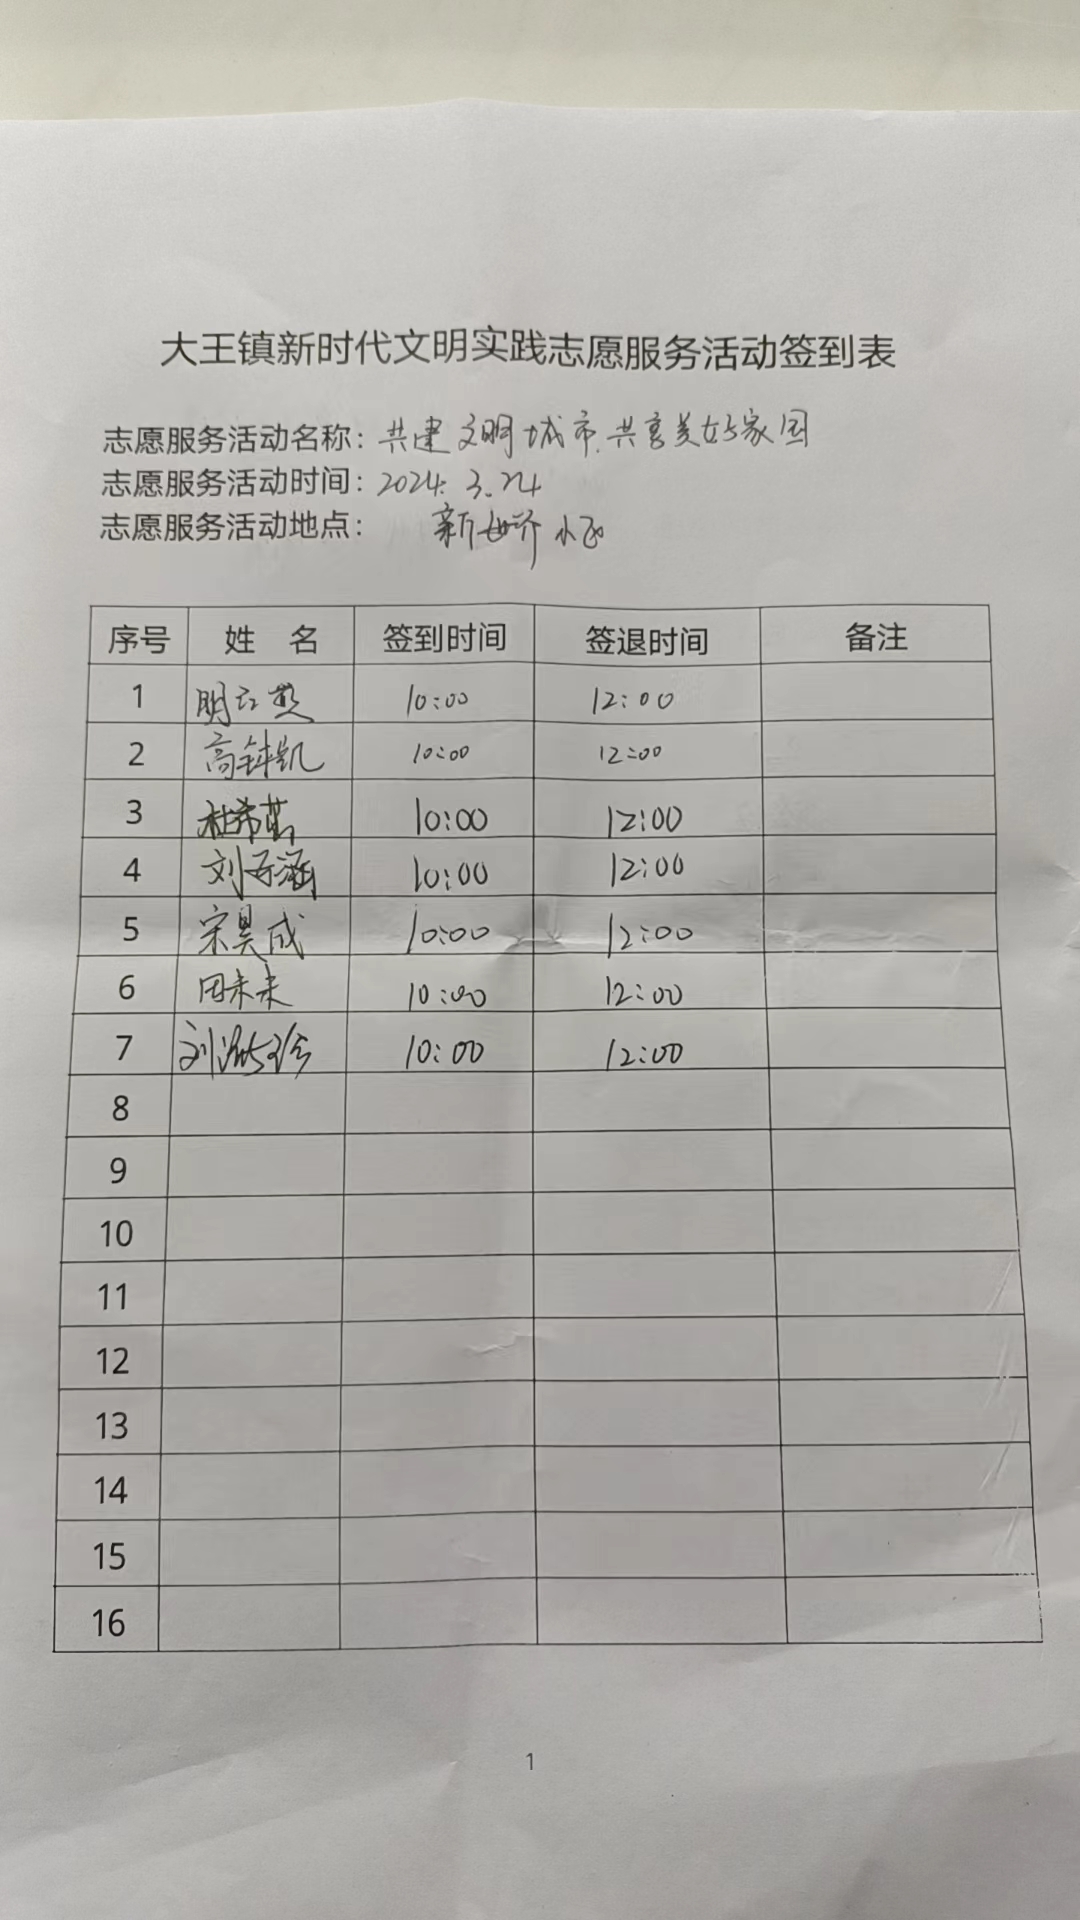 大王镇新时代文明实践志愿服务活动签到表
志愿服务活动名称：共建文明城市.共享美好家园
志愿服务活动时间：2024.3.24
志愿服务活动地点：新 小区
序号 姓 名 签到时间 签退时间 备注
1 明 10:00 12:00
2 高钟凯 10:00 12:00
3 杜希 10:00 12:00
4 刘子涵 10:00 12:00
5 宋昊成 10:00 12:00
6 田未来 10:00 12:00
7 刘 10:00 12:00
8
9
10
11
12
13
14
15
16
1